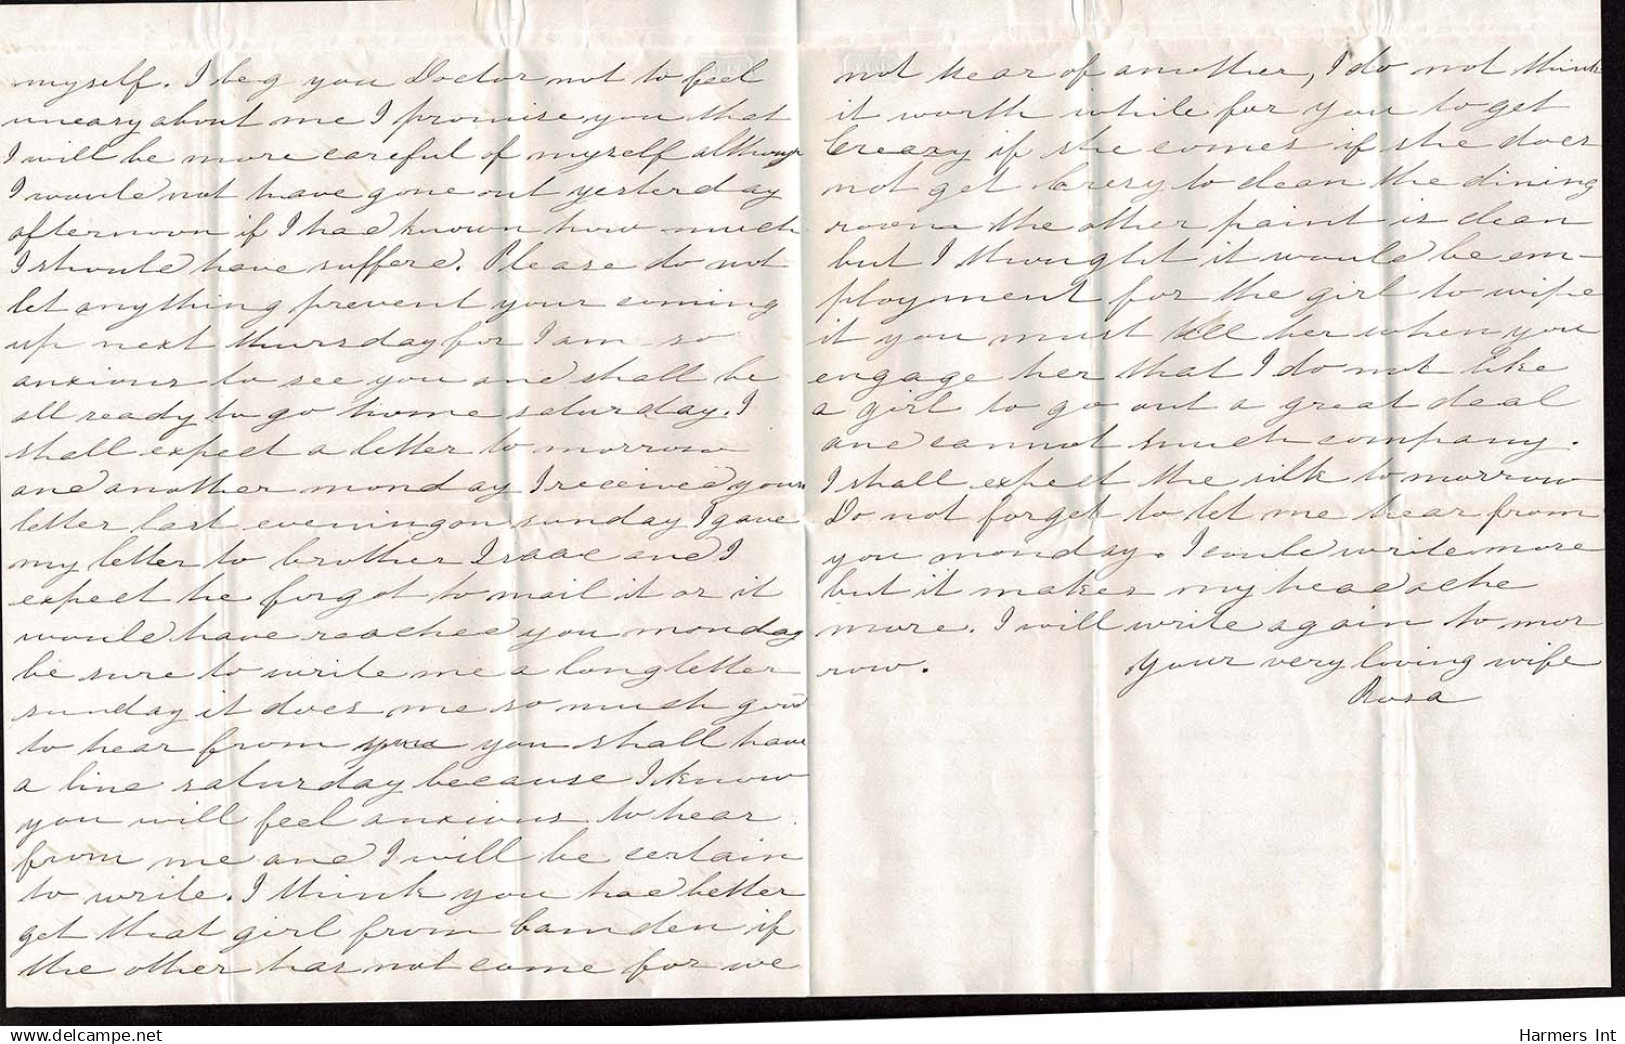 myself. I beg you Doctor not to feel
uneasy about me I promise you that
I will be more careful of myself although
I would not have gone out yesterday
afternoon if I had known how much
I should have suffered. Please do not
let anything prevent your coming
up next thursday for I am so
anxious to see you and shall be
all ready to go home saturday. I
shall expect a letter to morrow
and another monday I received your
letter last evening on sunday I gave
my letter to brother Isaac and I
expect he forgot to mail it or it
would have reached you monday
be sure to write me a long letter
sunday it does me so much good
to hear from you you shall have
a line saturday because I know
you will feel anxious to hear
from me and I will be certain
to write. I think you had better
get that girl from Camden if
the other has not come for we
not hear of another, I do not think
it worth while for you to get
Creazy if she comes if she does
not get Crezy to clean the dining
room the other paint is clean
but I thought it would be em-
ployment for the girl to wipe
it you must tell her when you
engage her that I do not like
a girl to go out a great deal
and cannot much company.
I shall expect the silk to morrow
Do not forget to let me hear from
you monday. I could write more
but it makes my head ache
more. I will write again to mor
row.
Your very loving wife
Rosa
Harmers Int